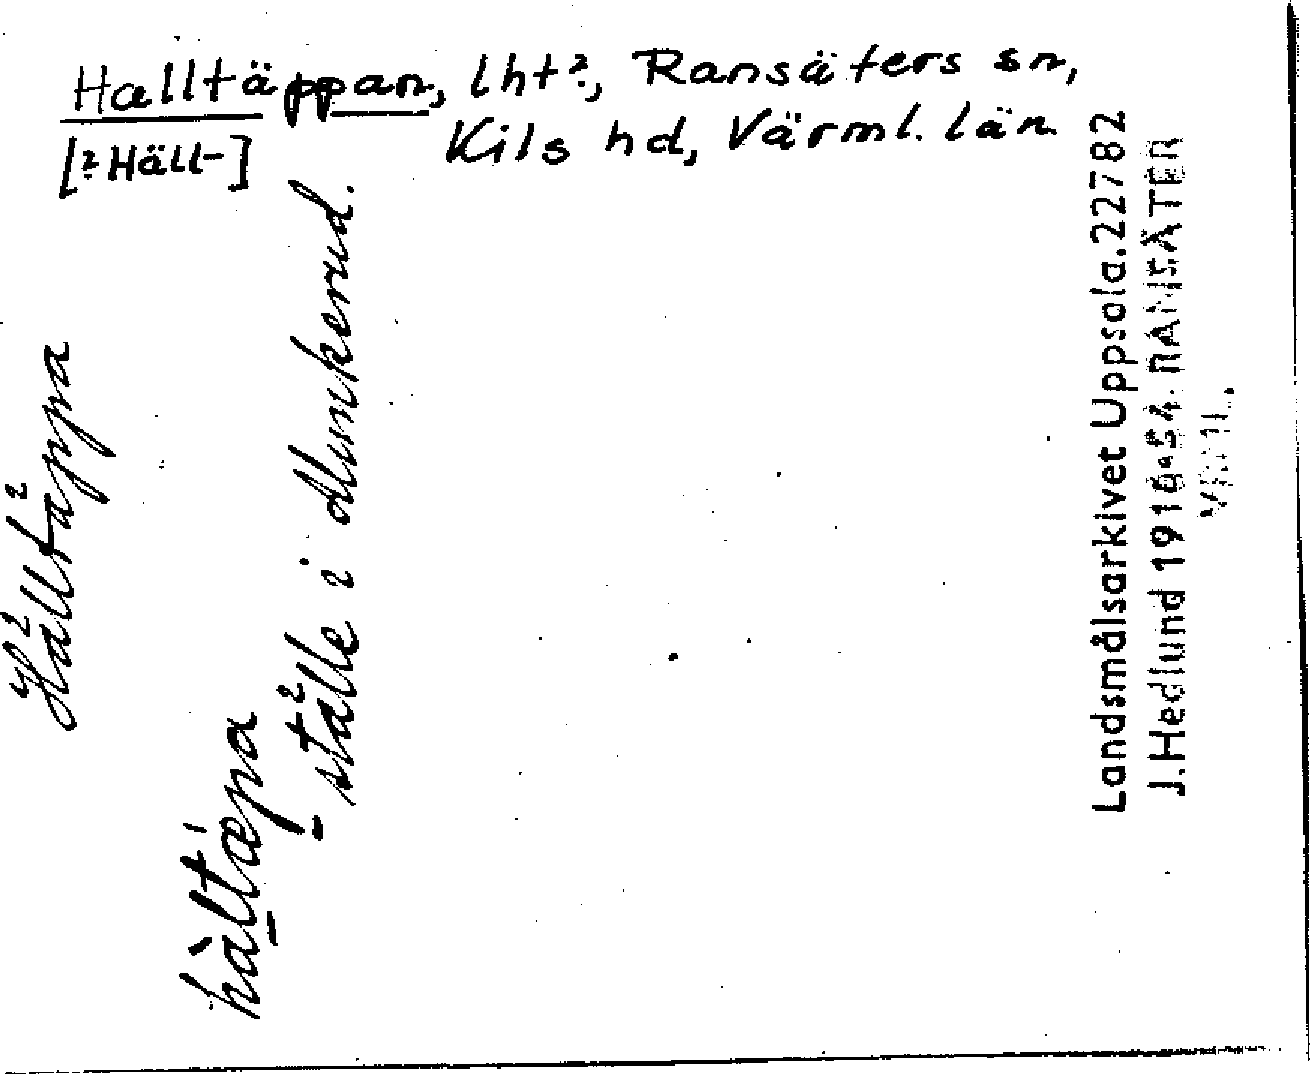 Halltäppan, lht?, Ransäters sn,
[? Häll-] Kils hd, Värml. län
Hälltäppa
hàltæpa
ställe i Munkerud.
Landsmålsarkivet Uppsala. 22782
J. Hedlund 1916-54. RANSÄTER
VRML.